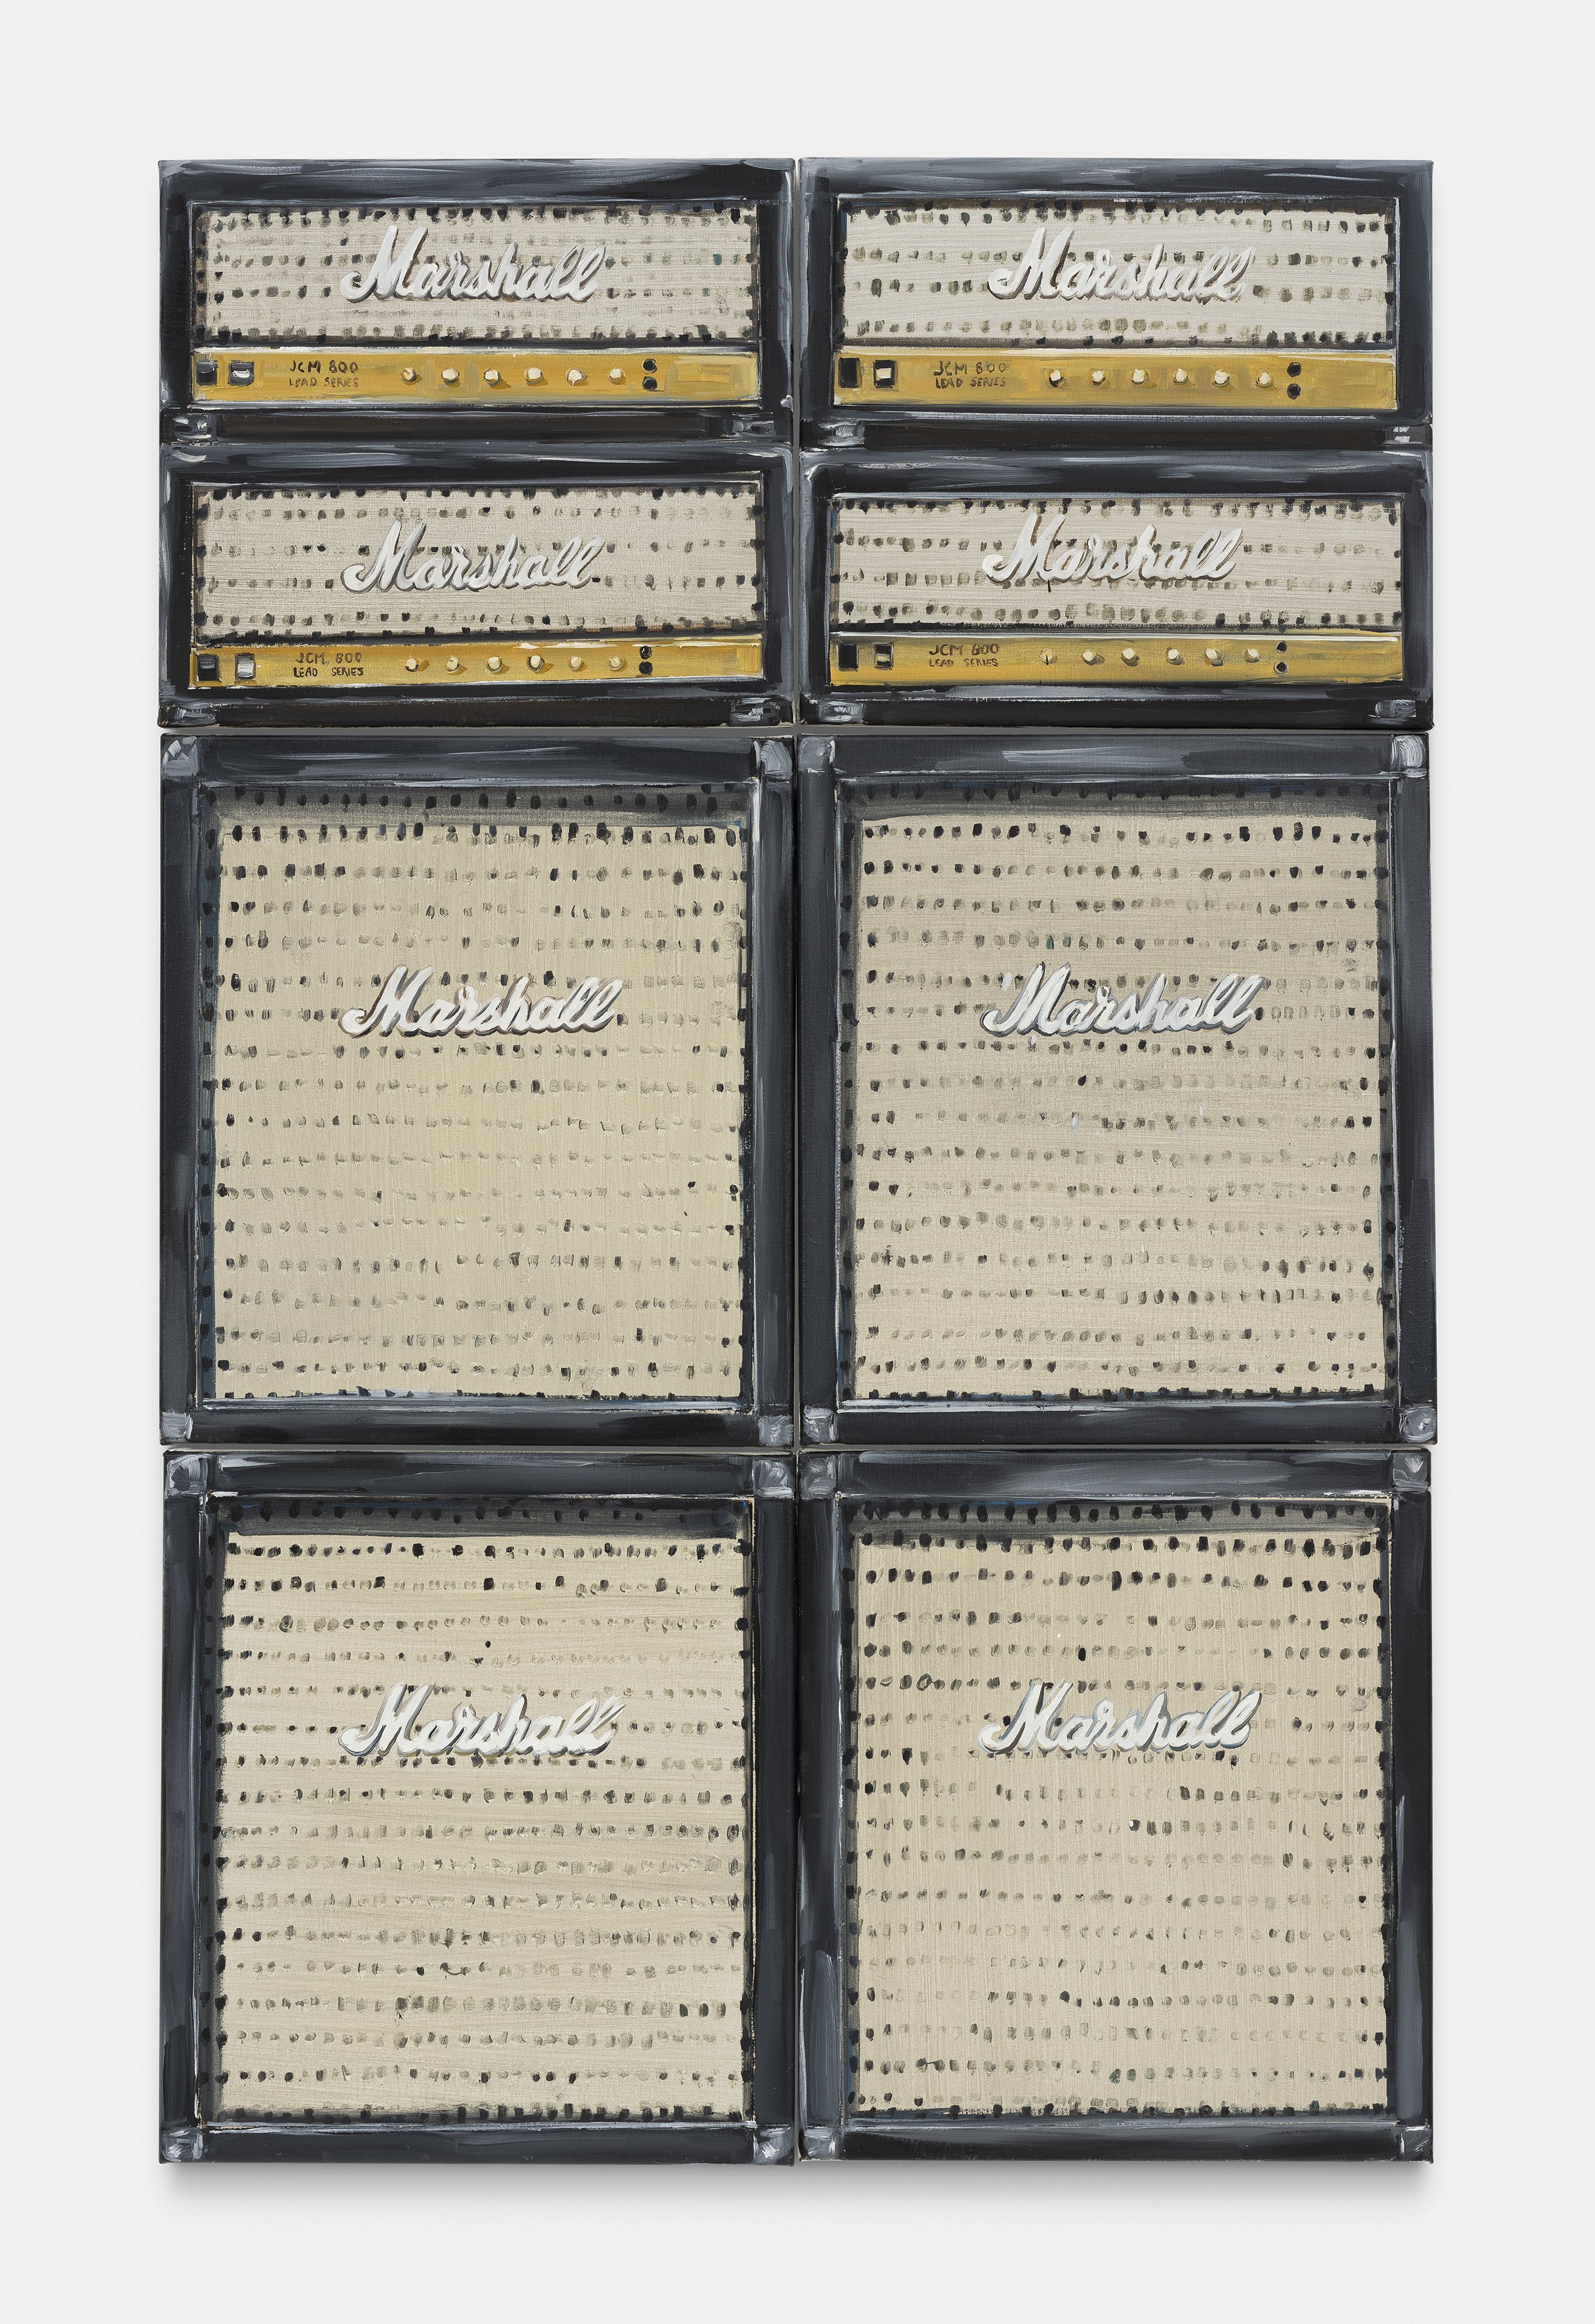 Marshall
JCM 800
LEAD SERIES
Marshall
JCM 800
LEAD SERIES
Marshall
JCM 800
LEAD SERIES
Marshall
JCM 800
LEAD SERIES
Marshall
Marshall
Marshall
Marshall